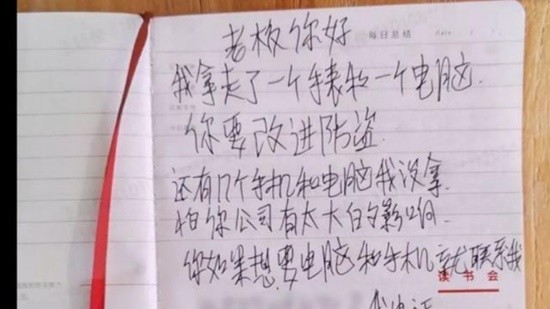 每日总结
老板你好
我拿走了一个手表和一个电脑.
你要改进防盗.
还有几个手机和电脑我没拿.
怕你公司有太大的影响.
你如果想要电脑和手机就联系我
读书会